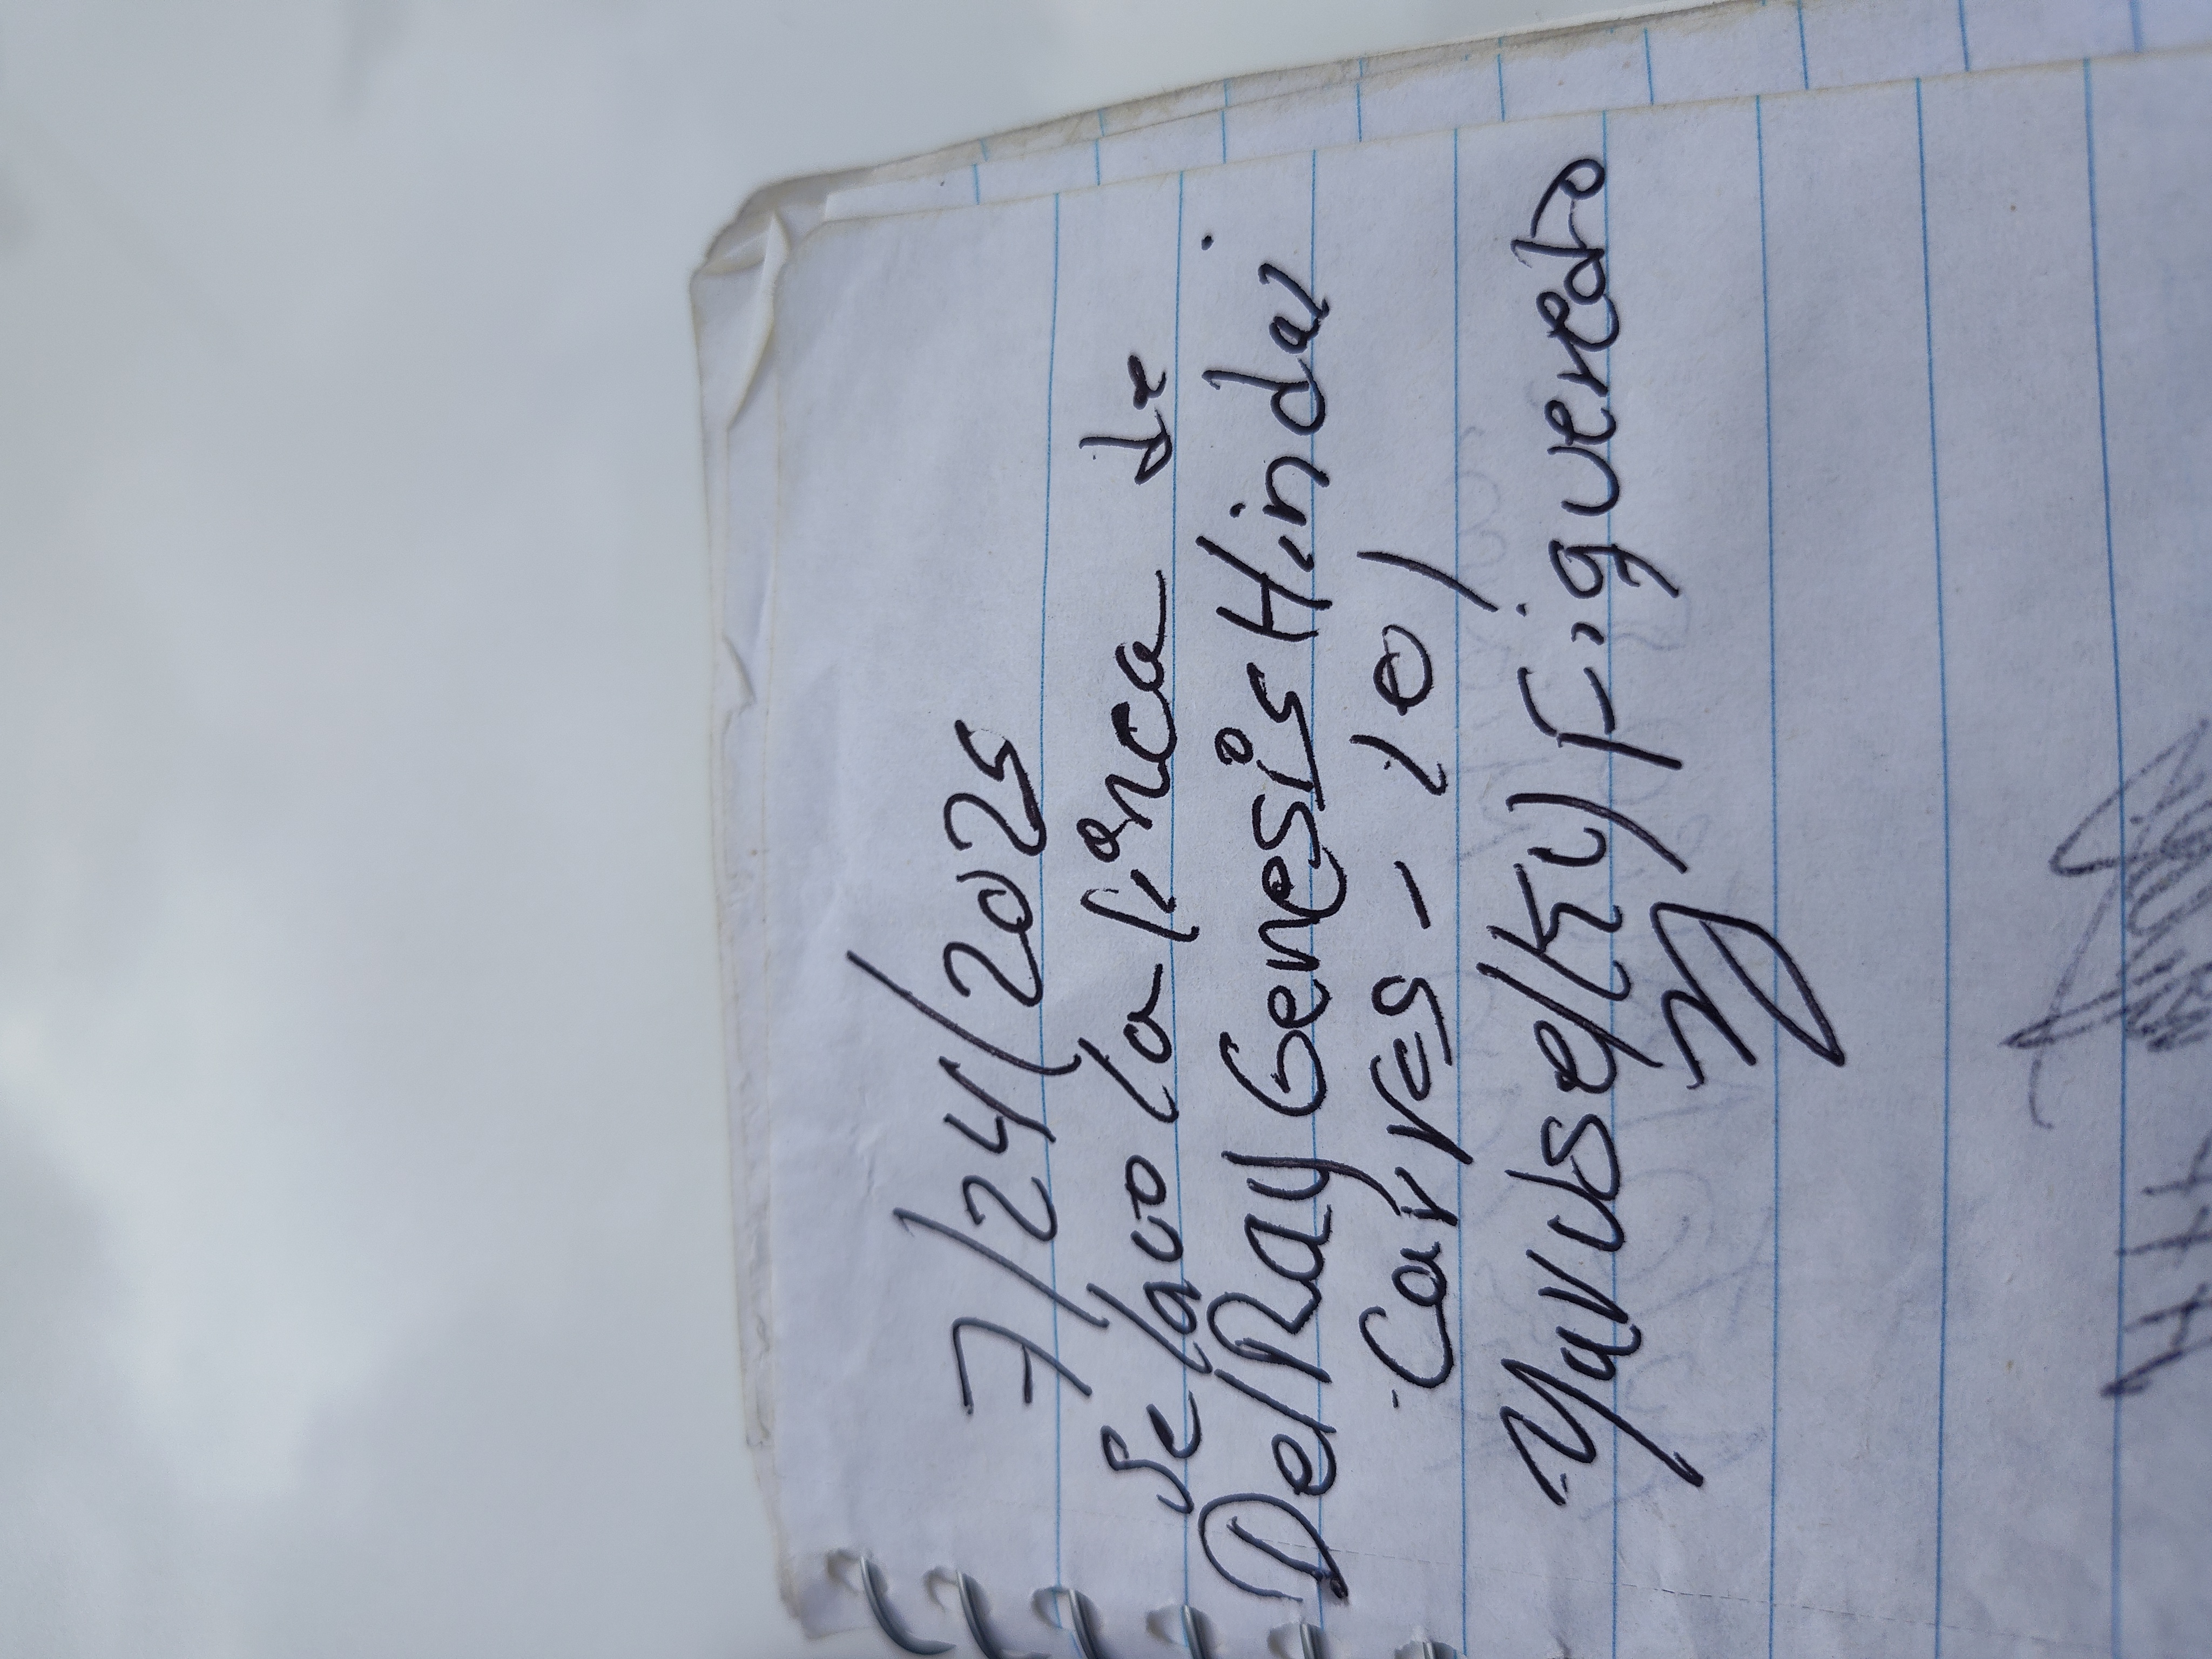 7/24/2025
se lavo la finca de
Del Ray Genesis Hindai
Carres - 101
Yuruselky Figueredo